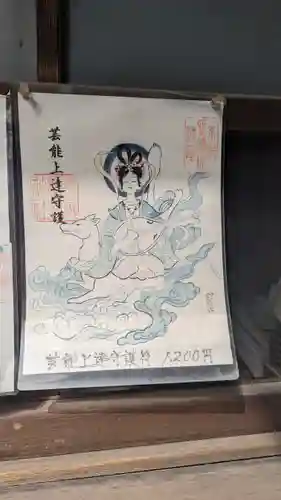 芸能上達守護
芸能上達守護符 1200円